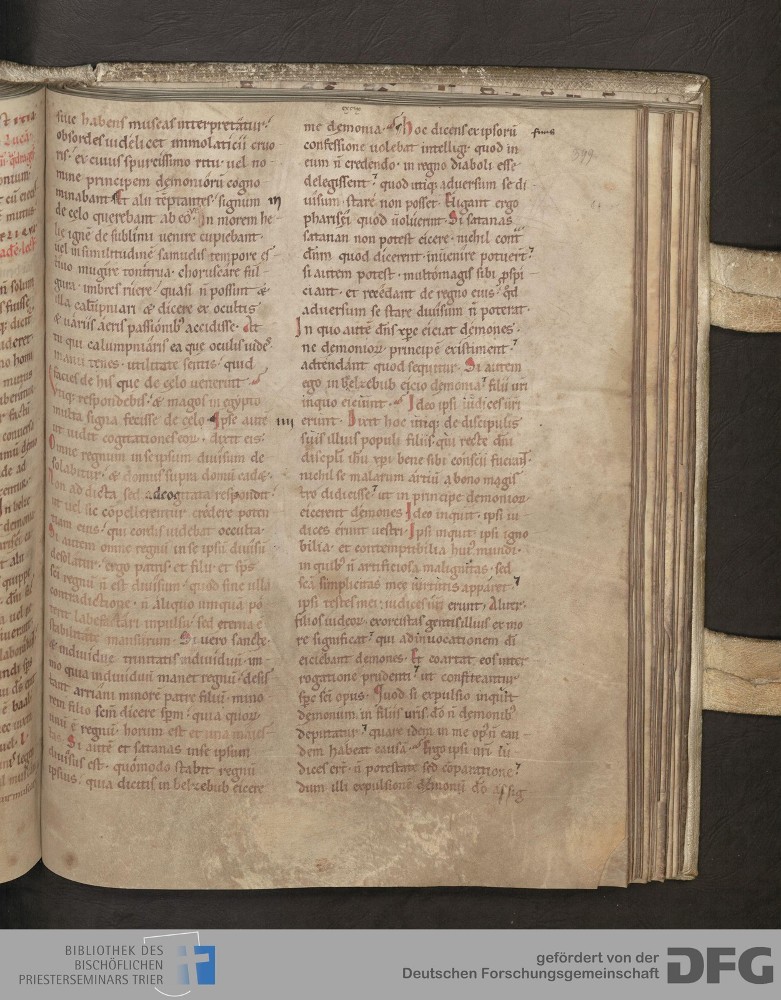 siue habens muscas interpretatur.
obsordes uidelicet immolaticii cruo
ris. ex cuius spurcissimo ritu uel no
mine principem demoniorũ cogno
minabant. Et alii temptantes. signum
de celo querebant ab eo. In morem he
lie ignẽ de sublimi uenire cupiebant.
uel in similitudinẽ samuelis tempore es
tiuo mugire tonitrua. choruscare ful
gura. imbres ruere. quasi ñ possint &
illa calũpniari & dicere ex occultis
& uariis aeris passionibꝰ accidisse. At
tu qui calumpniaris ea que oculis uides.
manu tenes. utilitate sentis. quid
facies de his que de celo uenerint
Vtiqꝫ respondebis. & magos in egypto
multa signa fecisse de celo. Ipse autẽ IIII
ut uidit cogitationes eorꝝ. dixit eis.
Omne regnum in se ipsum diuisum de
solabitur. & domus supra domũ cadet.
Non ad dicta sed ad cogitata respondit.
ut uel sic cõpellerentur credere poten
tiam eius. qui cordis uidebat occulta.
Si autem omne regnũ in se ipsũ diuisũ
desolatur. ergo patris et filii et sp̃s
sc̃i regnũ ñ est diuisum. quod sine ulla
contradictione. ñ aliquo umquã
labefactari inpulsu. sed eterna ẽ
stabilitate mansurum. Si uero sancte.
& indiuidue trinitatis indiuiduũ im
mo quia indiuiduũ manet regnũ. desis
tant arriani minorẽ patre filiũ. mino
rem filio sc̃m dicere sp̃m. quia quorꝝ
unũ ẽ regnũ. horum est et una maies
tas. Si autẽ et satanas in se ipsum
diuisus est. quomodo stabit regnũ
ipsius. quia dicitis in belzebub eicere
me demonia. Hoc dicens ex ipsorũ
confessione uolebat intelligi. quod in
eum ñ credendo. in regno diaboli esse
delegissent. quod utiqꝫ aduersum se di
uisum stare non posset. Eligant ergo
pharisei quod uoluerint. Si satanas
satanan non potest eicere. nichil cont͛
dñm quod dicerent inuenire potuer͛t.
si autem potest. multomagis sibi ꝓspi
ciant. et recedant de regno eius. qd̃
aduersum se stare diuisum ñ poterit.
In quo autẽ dñs xp̃c eiciat demones.
ne demoniorꝝ principẽ existiment.
adtendant quod sequitur. Si autem
ego in belzebub eicio demonia. filii ur̃i
in quo eiciunt. Ideo ipsi iudices ur̃i
erunt. Dixit hoc utiqꝫ de discipulis
suis illius populi filiis. qui recte dñi
discipl̃i ih̃u xp̃i bene sibi conscii fuerant.
nichil se malarum artiũ a bono magis
tro didicisse. ut in principe demoniorꝝ
eicerent demones. Ideo inquit. ipsi iu
dices erunt uestri. Ipsi inquit ipsi igno
bilia. et contemptibilia huiꝰ mundi.
in quibꝰ ñ artificiosa malignitas. sed
sc̃a simplicitas mee uirtutis apparet.
ipsi testes mei. iudices ur̃i erunt. Aliter.
filios iudeorꝝ. exorcistas gentis illius ex mo
re significat. qui ad inuocationem dĩ
eiciebant demones. Et coartat eos inter
rogatione prudenti. ut confiteantur
sp̃c sc̃i opus. Quod si expulsio inquit
demonum in filiis ur̃is dõ ñ demonibꝰ
deputatur. quare idem in me opꝰ ñ ean
dem habeat causã. Ergo ipsi ur̃i iu
dices ert̃. ñ potestate sed cõparatione.
dum illi expulsionẽ demonũ dõ assig